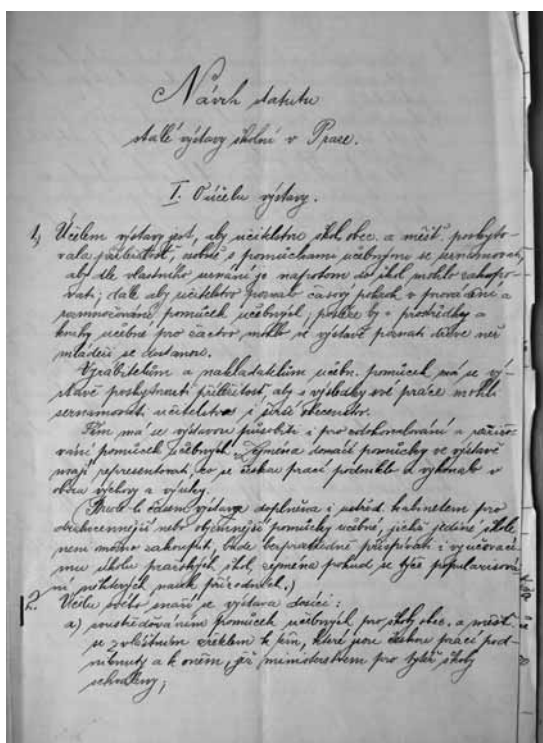 Návrh statutu
stálé výstavy školní v Praze.
I. O účelu výstavy.
1, Účelem výstavy jest, aby učitelstvu škol obec. a měšť. poskyto-
vala příležitost, osobně s pomůckami učebnými se seznamovati,
aby dle vlastního uznání je napotom do škol mohlo zakupo-
vati; dále aby učitelstvo poznalo časový pokrok v provádění a
pomůcek učebných, posléze by i prostředky a
knihy učebné pro žactvo mohlo ve výstavě poznati dříve než
mládeži se dostanou.
Vyrabitelům a nakladatelům učebn. pomůcek má se vý-
stavě poskytnouti příležitost, aby s výsledky své práce mohli
seznamovati učitelstvo i širší obecenstvo.
Tím má se výstavou působiti i pro zdokonalování a
vání pomůcek učebných. Zejména domácí pomůcky ve výstavě
mají representovati, co se českou prací podniklo a vykonalo v
oboru výchovy a výuky.
(Bude-li časem výstava doplněna i ústřed. kabinetem pro
nebo objemnější pomůcky učebné, jichž jediné škole
není možno zakoupiti, bude bezprostředně přispívati i vyučovací-
mu úkolu pražských škol, zejména pokud se týče popularisová-
ní některých nauk přírodních.)
2. Účelu svého snaží se výstava dojíti:
a) soustřeďováním pomůcek učebných pro školy obec. a měšť.
se zvláštním zřetelem k těm, které jsou českou prací pod-
niknuty a k oněm, jež ministerstvem pro tytéž školy
schváleny;